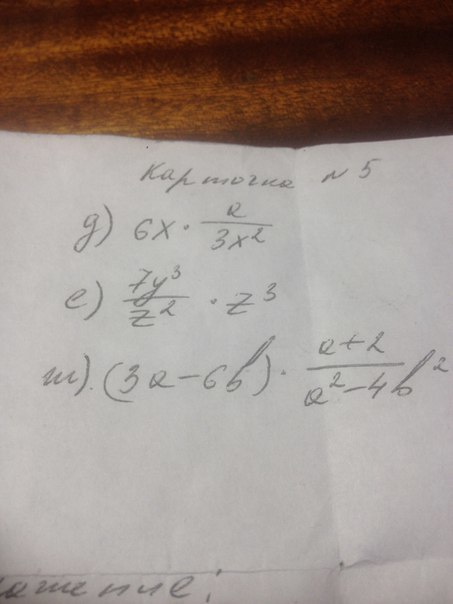 Карточка № 5
д) 6x · a/3x²
е) 7y³/z² · z³
ж). (3a-6b) · a+2/a²-4b²